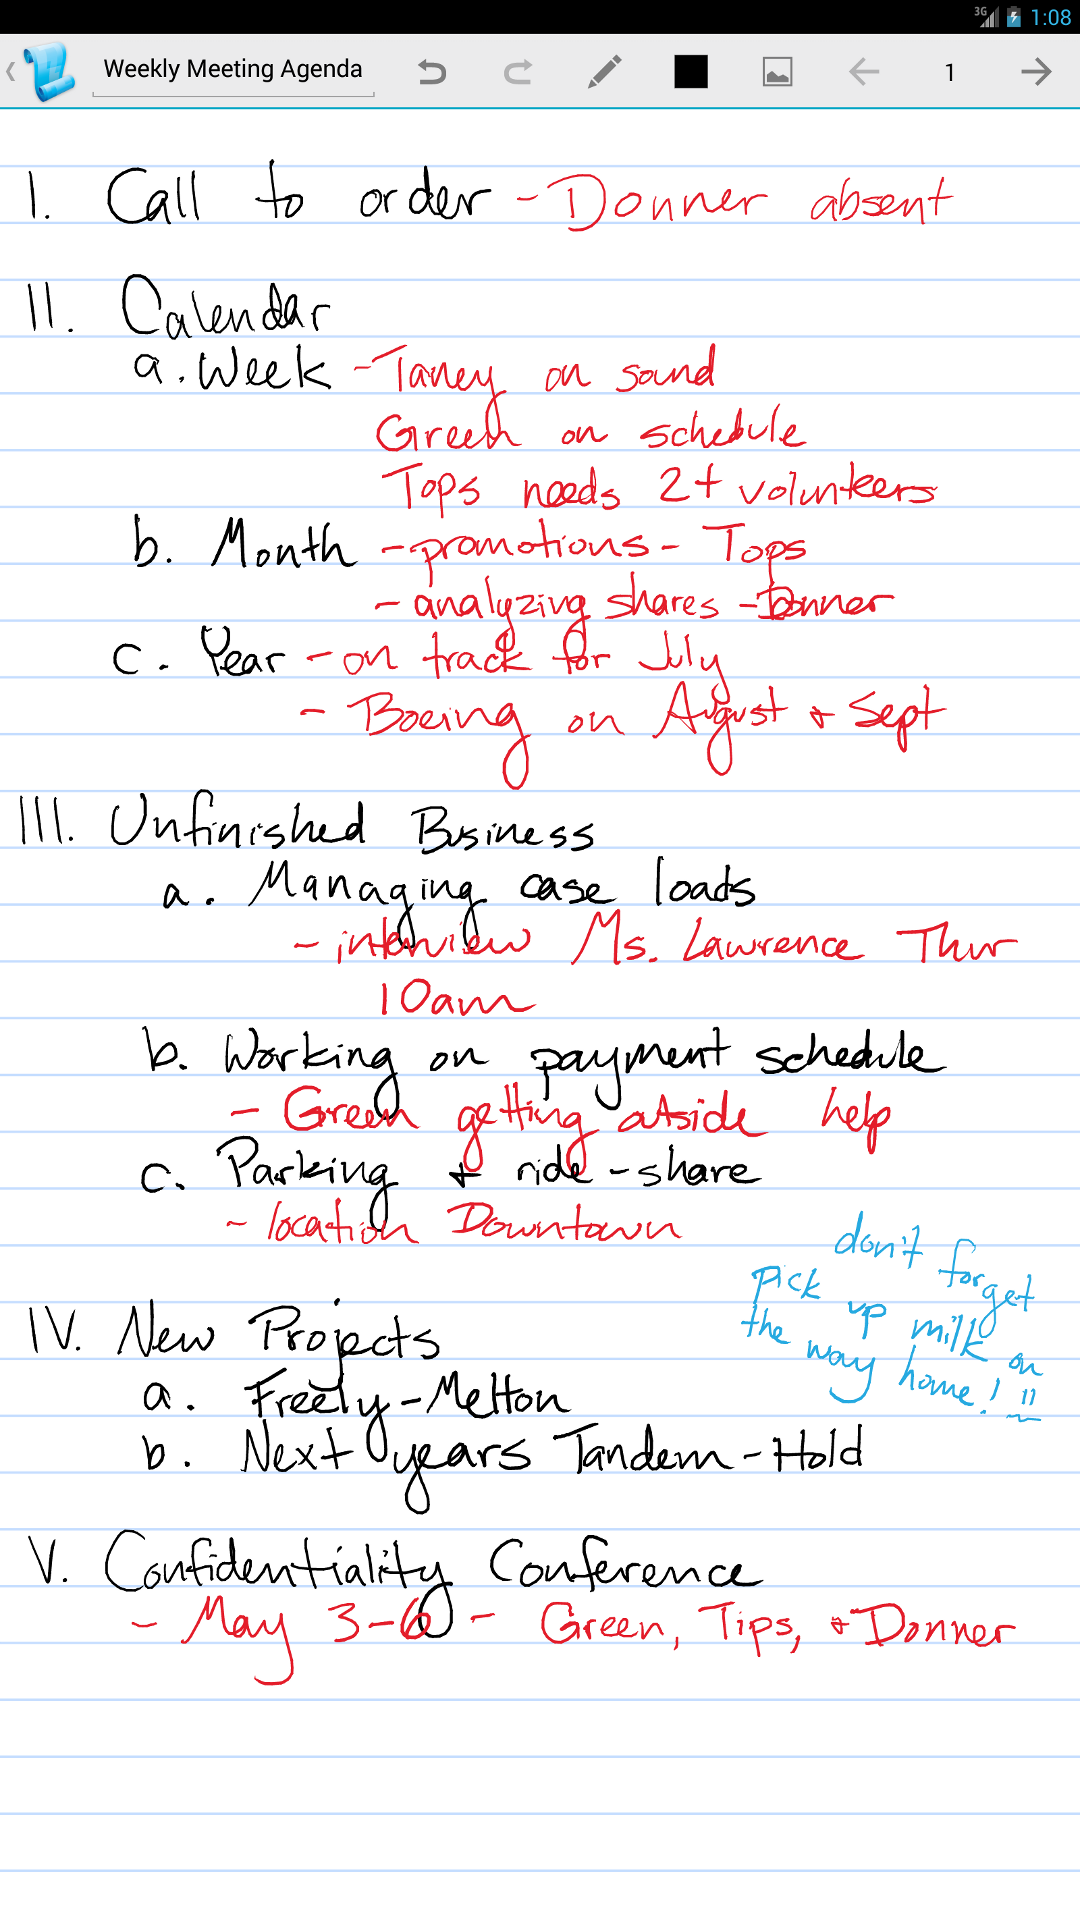 3G 1:08
Weekly Meeting Agenda 1
I. Call to order - Donner absent
II. Calendar
a. Week - Taney on sound
Green on schedule
Tops needs 2+ volunteers
b. Month - promotions - Tops
- analyzing shares - Donner
c. Year - on track for July
- Boeing on August + Sept
III. Unfinished Business
a. Managing case loads
- interview Ms. Lawrence Thur
10am
b. Working on payment schedule
- Green getting outside help
c. Parking + ride-share
- location Downtown
don't forget
pick up milk on
the way home! !!
IV. New Projects
a. Freely-Melton
b. Next years Tandem-Hold
V. Confidentiality Conference
- May 3-6 - Green, Tips, + Donner